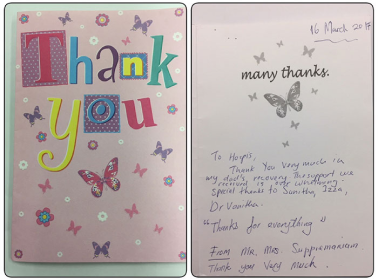 Thank
you
16 March 2017
many thanks.
To
Thank You Very much in
my dad's recovery. The support we
received is over whelming.
Special thanks to Sunitha, Izza,
Dr Vanitha.
"Thanks for everything"
From Mr. Mrs Suppramaniam
Thank you Very Much.